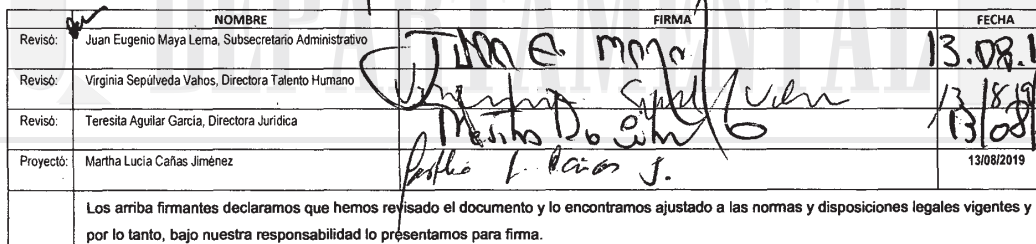 DEPARTAMENTAL
NOMBRE FIRMA FECHA
Revisó: Juan Eugenio Maya Lema, Subsecretario Administrativo Juan E. Maya 13.08.1
Revisó: Virginia Sepúlveda Vahos, Directora Talento Humano 13/8/19
Revisó: Teresita Aguilar García, Directora Jurídica 13/08
Proyectó: Martha Lucía Cañas Jiménez 13/08/2019
Los arriba firmantes declaramos que hemos revisado el documento y lo encontramos ajustado a las normas y disposiciones legales vigentes y
por lo tanto, bajo nuestra responsabilidad lo presentamos para firma.